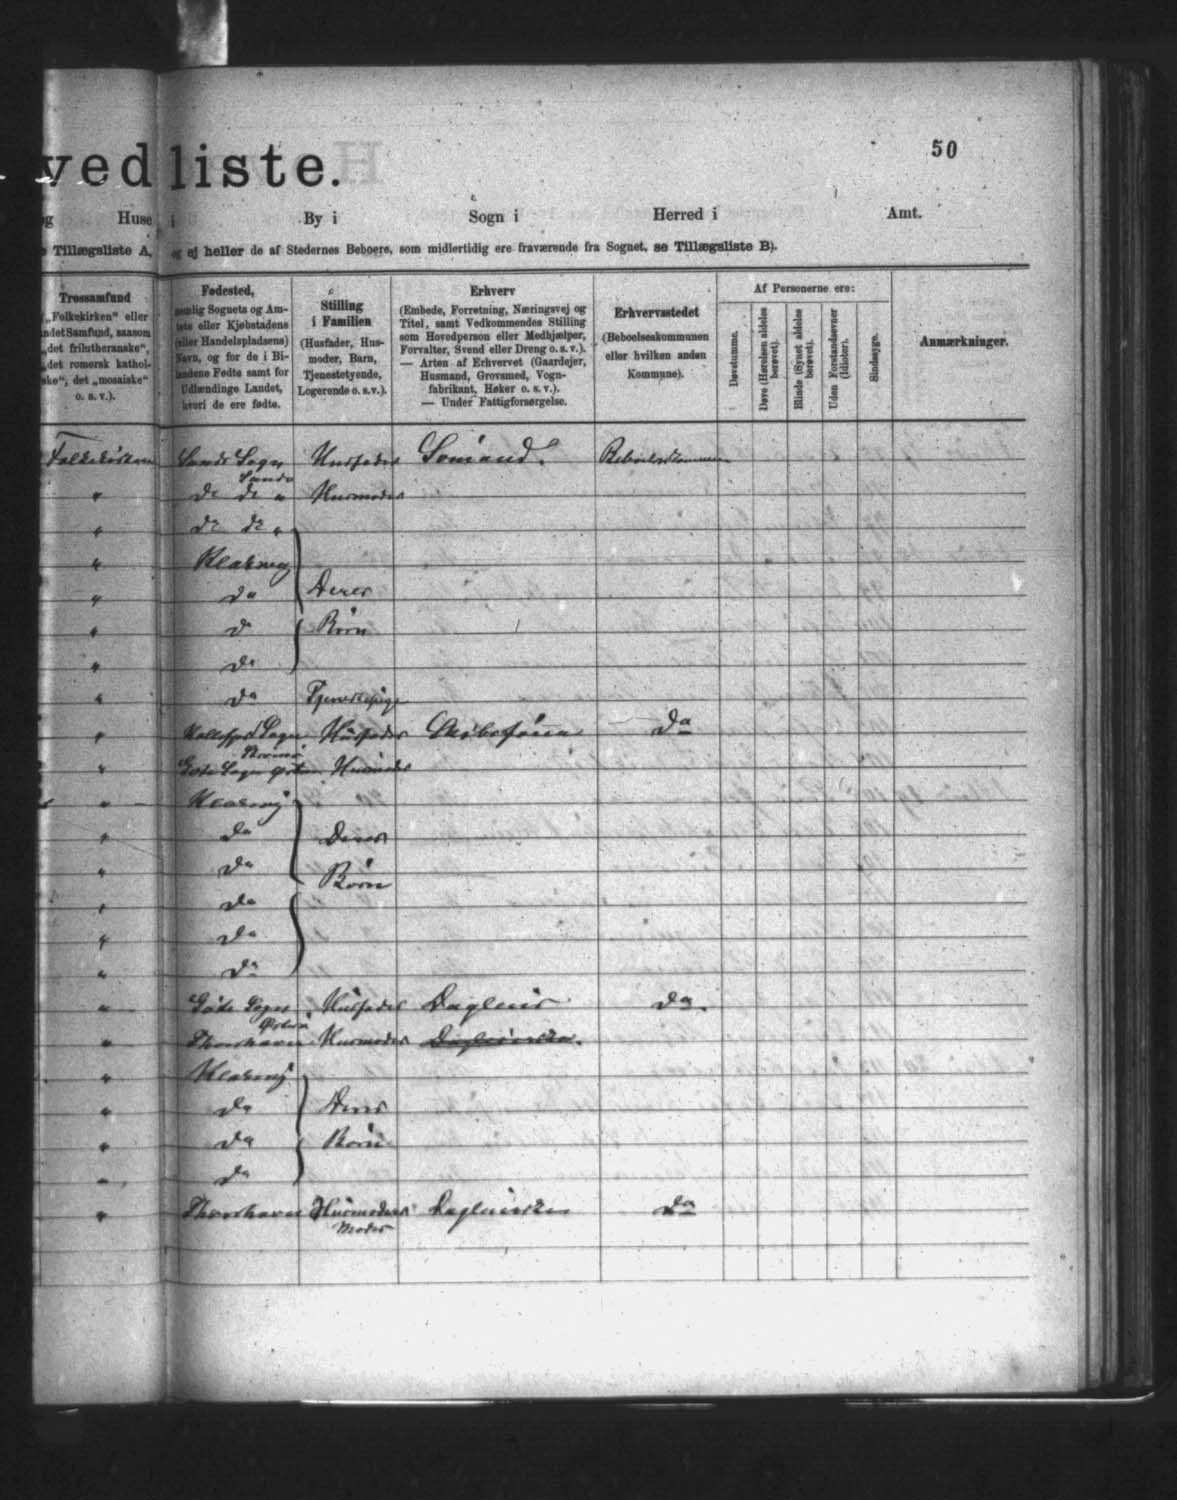 vedliste.
50
og Huse i By i Sogn i Herred i Amt.
Tillægsliste A, og ej heller de af Stedernes Beboere, som midlertidig ere fraværende fra Sognet, se Tillægsliste B).
Trossamfund
(„Folkekirken" eller
andet Samfund, saasom
„det frilutheranske",
„det romersk kathol-
ske", det „mosaiske"
o. s. v.).
Fødested,
nemlig Sognets og Am-
tets eller Kjøbstadens
(eller Handelspladsens)
Navn, og for de i Bi-
landene Fødte samt for
Udlændinge Landet,
hvori de ere fødte.
Stilling
i Familien
(Husfader, Hus-
moder, Barn,
Tjenestetyende,
Logerende o. s. v.).
Erhverv
(Embede, Forretning, Næringsvej og
Titel, samt Vedkommendes Stilling
som Hovedperson eller Medhjælper,
Forvalter, Svend eller Dreng o. s. v.).
— Arten af Erhvervet (Gaardejer,
Husmand, Grovsmed, Vogn-
fabrikant, Høker o. s. v.).
— Under Fattigforsørgelse.
Erhvervsstedet
(Beboelseskommunen
eller hvilken anden
Kommune).
Af Personerne ere:
Døvstumme.
Døve (Hørelsen aldeles
berøvet).
Blinde (Synet aldeles
berøvet).
Uden Forstandsevner
(Idioter).
Sindssyge.
Anmærkninger.
Folkekirken Sands Sogn Husfader Sømand. Beboelseskommunen
Sandø
" do do " Husmoder
" do do "
" Klaksvig
" do Deres
" do Børn
" do
" do Tjenestepige
" Sogn Husfader do
Strømø
" Gøte Sogn Østerø Husmoder
" Klaksvig
" do Deres
" do Børn
" do
" do
" do
" Gøte Sogn Husfader Daglejer do.
Østerø
" Thorshavn Husmoder Daglejerske.
" Klaksvig
" do Deres
" do Børn
" do
" Thorshavn Husmoders Daglejerske do
Moder